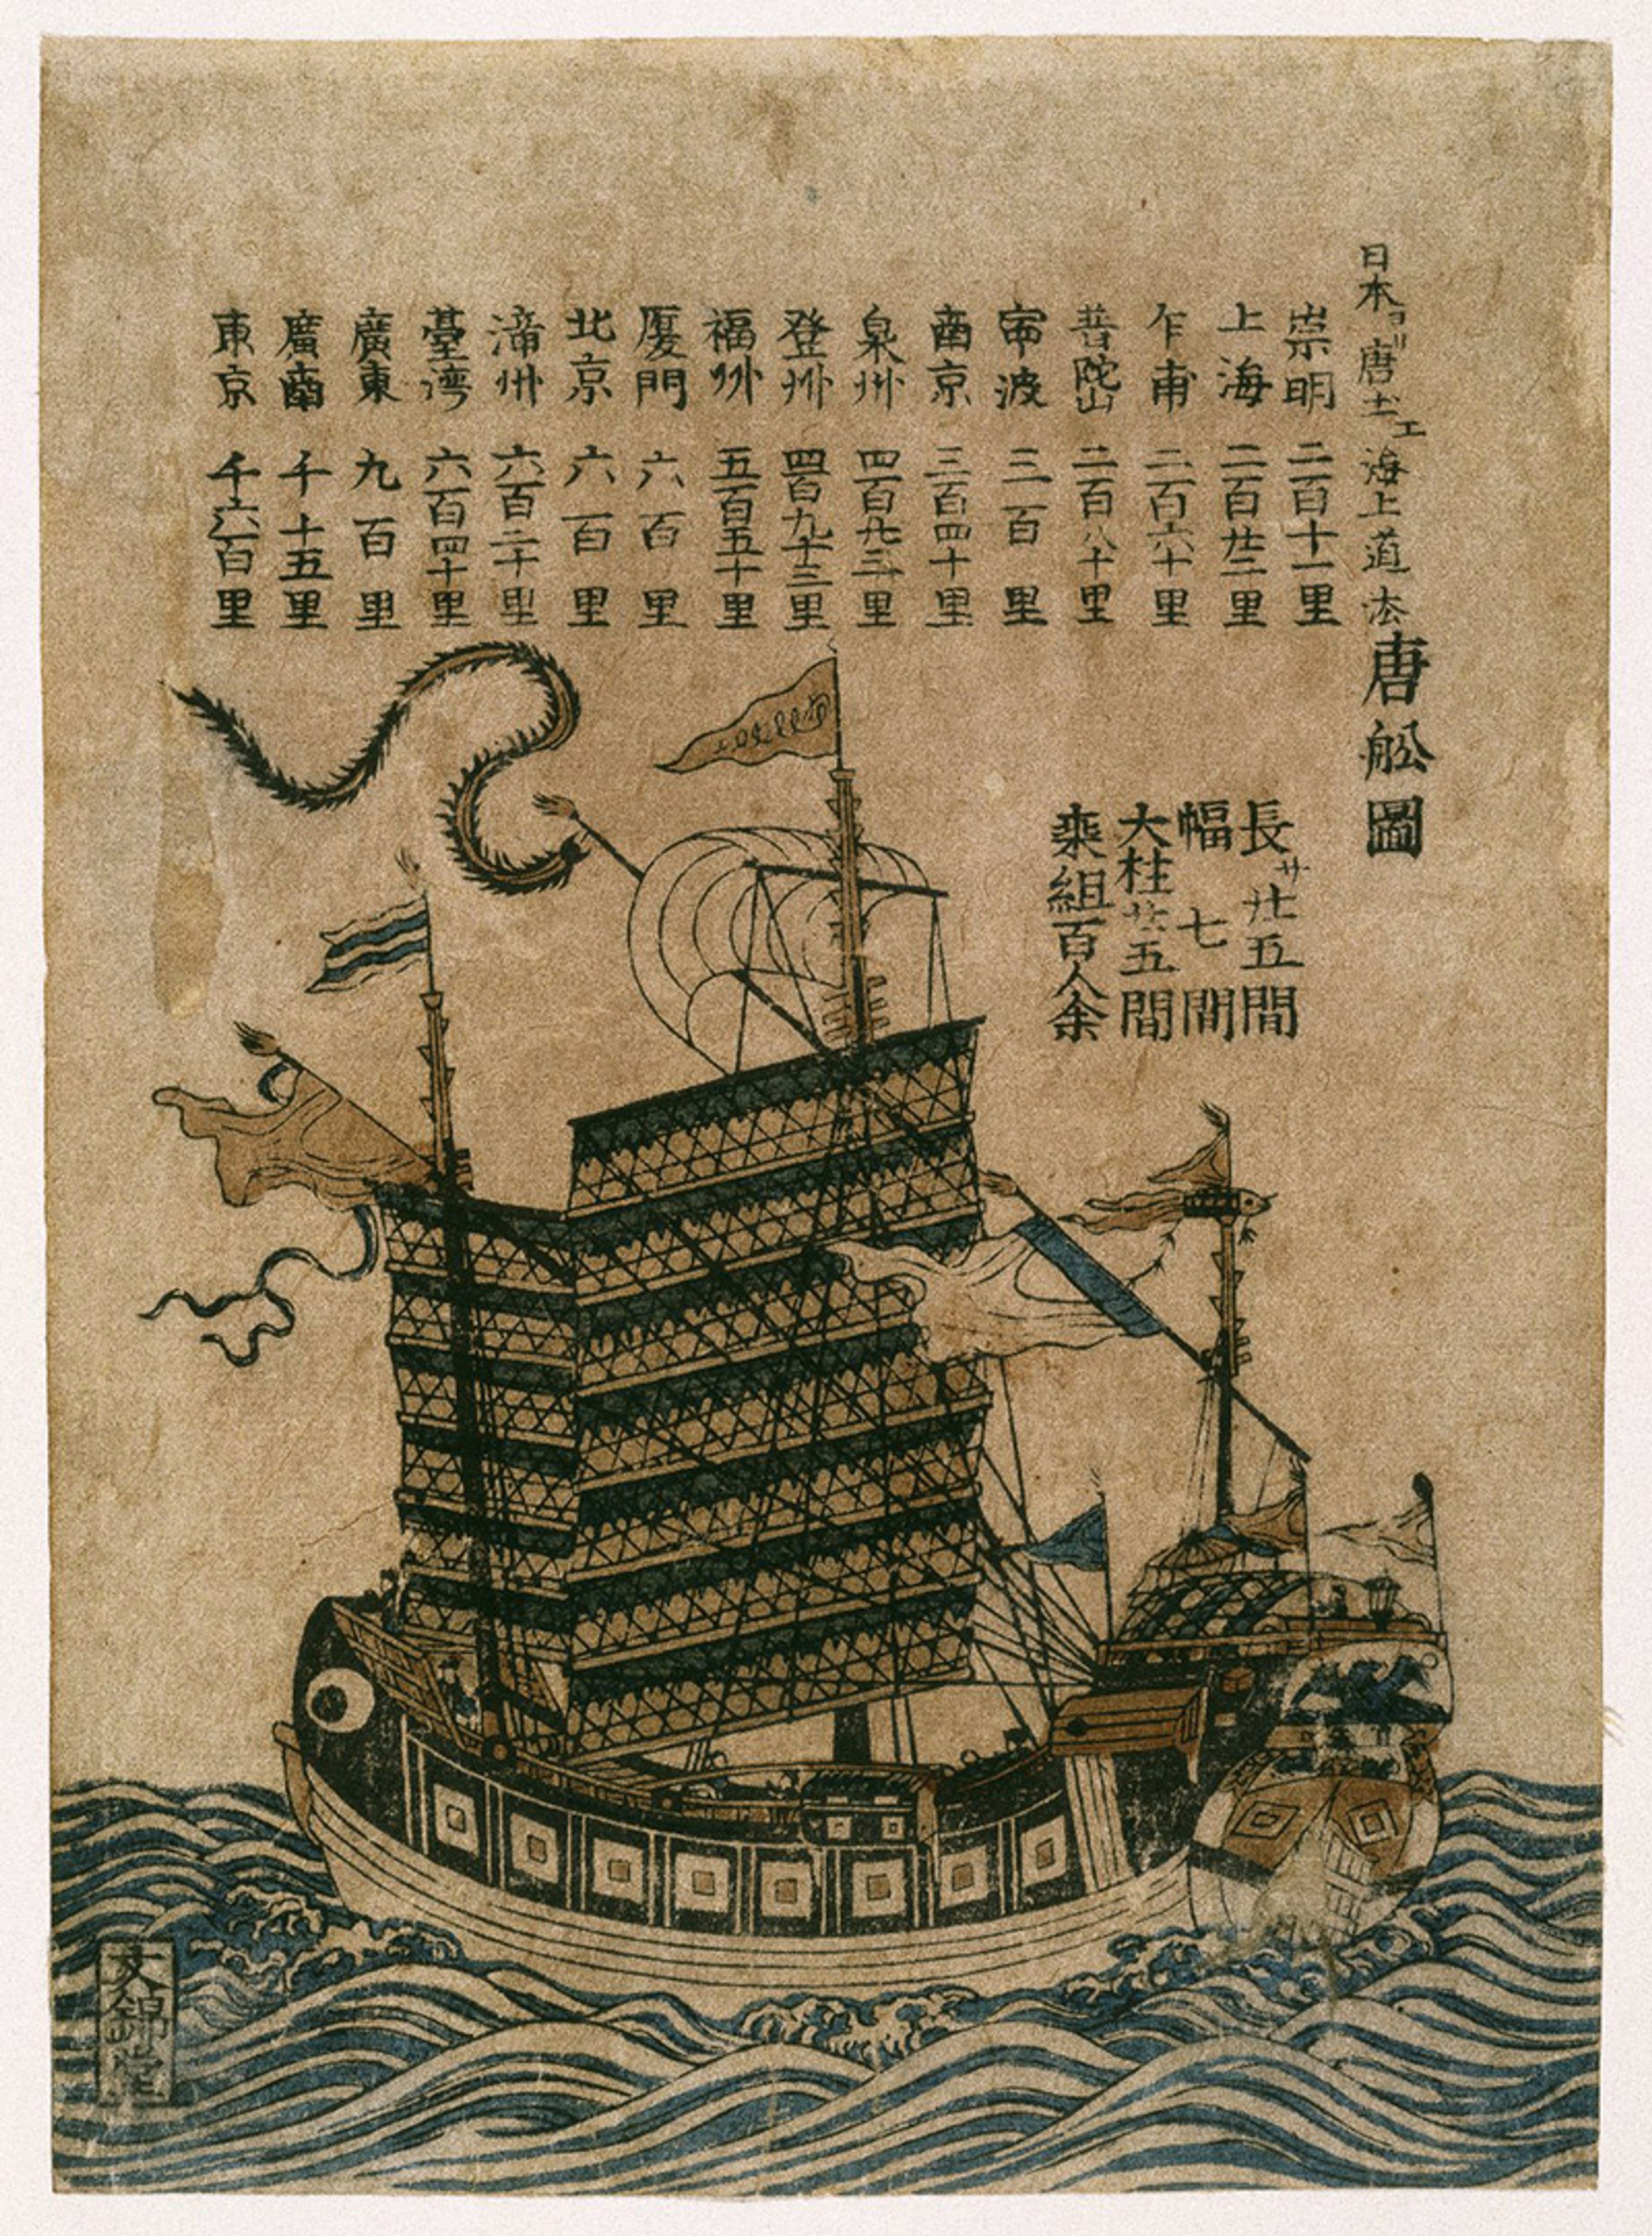 日本ヨリ唐土エ海上道法
唐舩圖
長サ廿五間
幅七間
大柱廿五間
乗組百人余
崇明 二百十一里
上海 二百廿二里
乍甫 二百六十里
普陀山 二百八十里
寧波 三百里
南京 三百四十里
泉州 四百廿三里
登州 四百九十三里
福州 五百五十里
厦門 六百里
北京 六百里
漳州 六百二十里
臺湾 六百四十里
廣東 九百里
廣南 千十五里
東京 千六百里
文錦堂